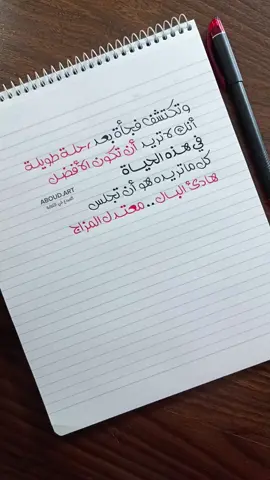 وتكتشف فجأة بعد رحلة طويلة
أنك لا تريد أن تكون الأفضل
في هذه الحياة
كل ما تريده هو أن تجلس
هادئ البال .. معتدل المزاج
ABOUD.ART